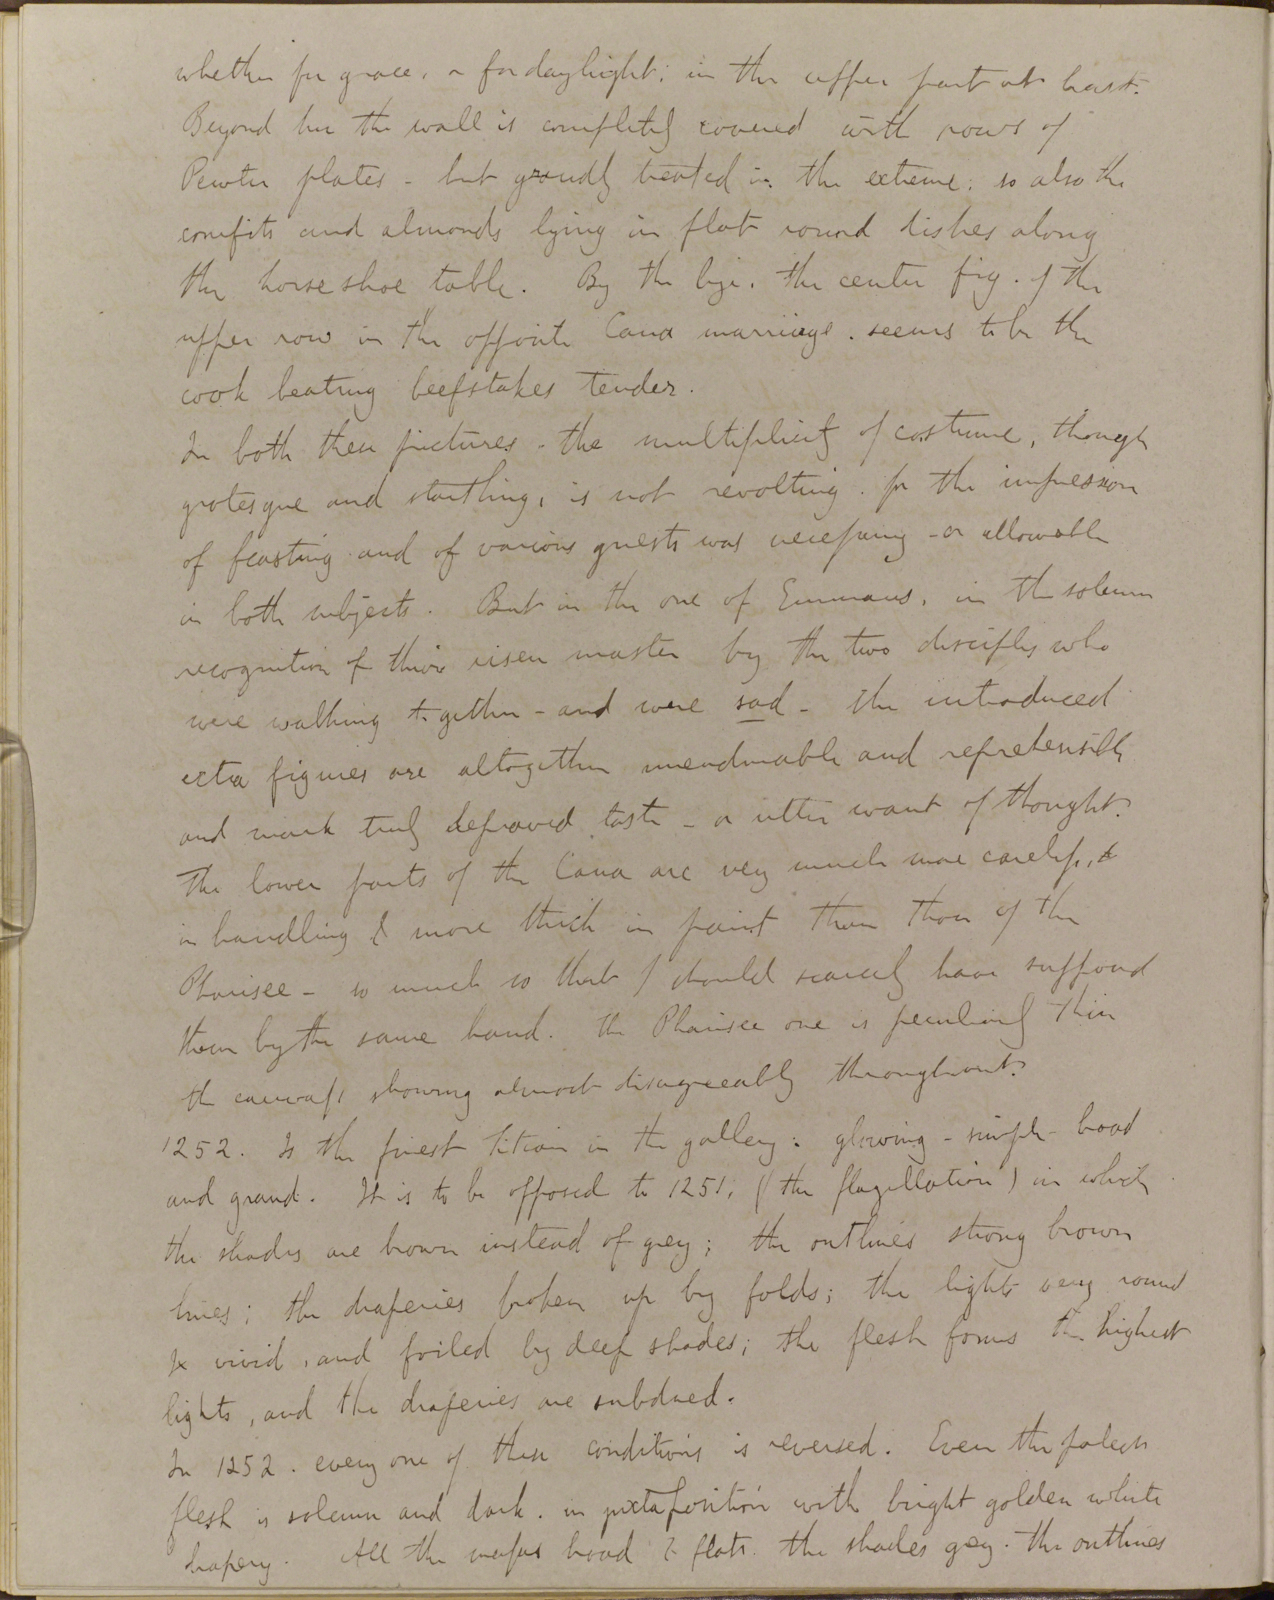 whether for grace, or for daylight; in the upper part at least.
Beyond her the wall is completely covered with rows of
Pewter plates - but grandly treated in the extreme; so also the
comfits and almonds lying in flat round dishes along
the horse shoe table. By the bye, the center fig. of the
upper row in the opposite Cana marriage. seems to be the
cook beating beefstakes tender.
In both these pictures - the multiplicity of costume, though
grotesque and startling, is not revolting. for the impression
of feasting and of various guests was necessary - or allowable
in both subjects. But in the one of Emmaus, in the solemn
recognition of their risen master by the two disciples who
were walking together - and were sad - the introduced
extra figures are altogether unendurable and reprehensible
and mark truly depraved taste - or utter want of thought.
The lower parts of the Cana are very much more careless,
in handling & more thick in paint than those of the
Pharisee - so much so that I should scarcely have supposed
them by the same hand. The Pharisee one is peculiarly thin
the canvass showing almost disagreeably throughout.
1252. Is the finest Titian in the gallery: glowing - simple - broad
and grand. It is to be opposed to 1251, (the flagellation) in which
the shades are brown instead of grey; the outlines strong brown
lines; the draperies broken up by folds; the lights very round
& vivid, and foiled by deep shades; the flesh forms the highest
lights, and the draperies are subdued.
In 1252. every one of these conditions is reversed. Even the palest
flesh is solemn and dark. in juxtaposition with bright golden white
drapery. All the masses broad & flat. the shades grey. the outlines